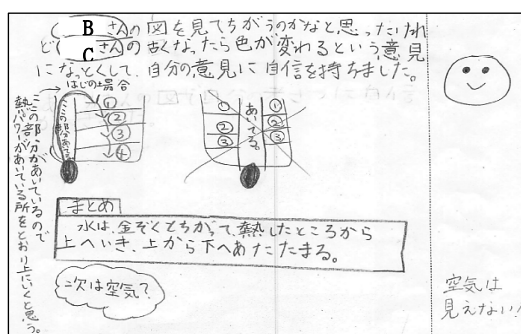 Bさんの図を見てちがうのかなと思ったけれ
どCさんの古くなったら色が変わるという意見
になっとくして、自分の意見に自信を持ちました。
はじの場合
①
②
③
④
この部分があいているので
熱パワーがあいている所をとおり上にいくと思う。
①
②
③
あいてる。
①
②
③
まとめ
水は、金ぞくとちがって、熱したところから
上へいき、上から下へあたたまる。
次は空気?
空気は
見えない!